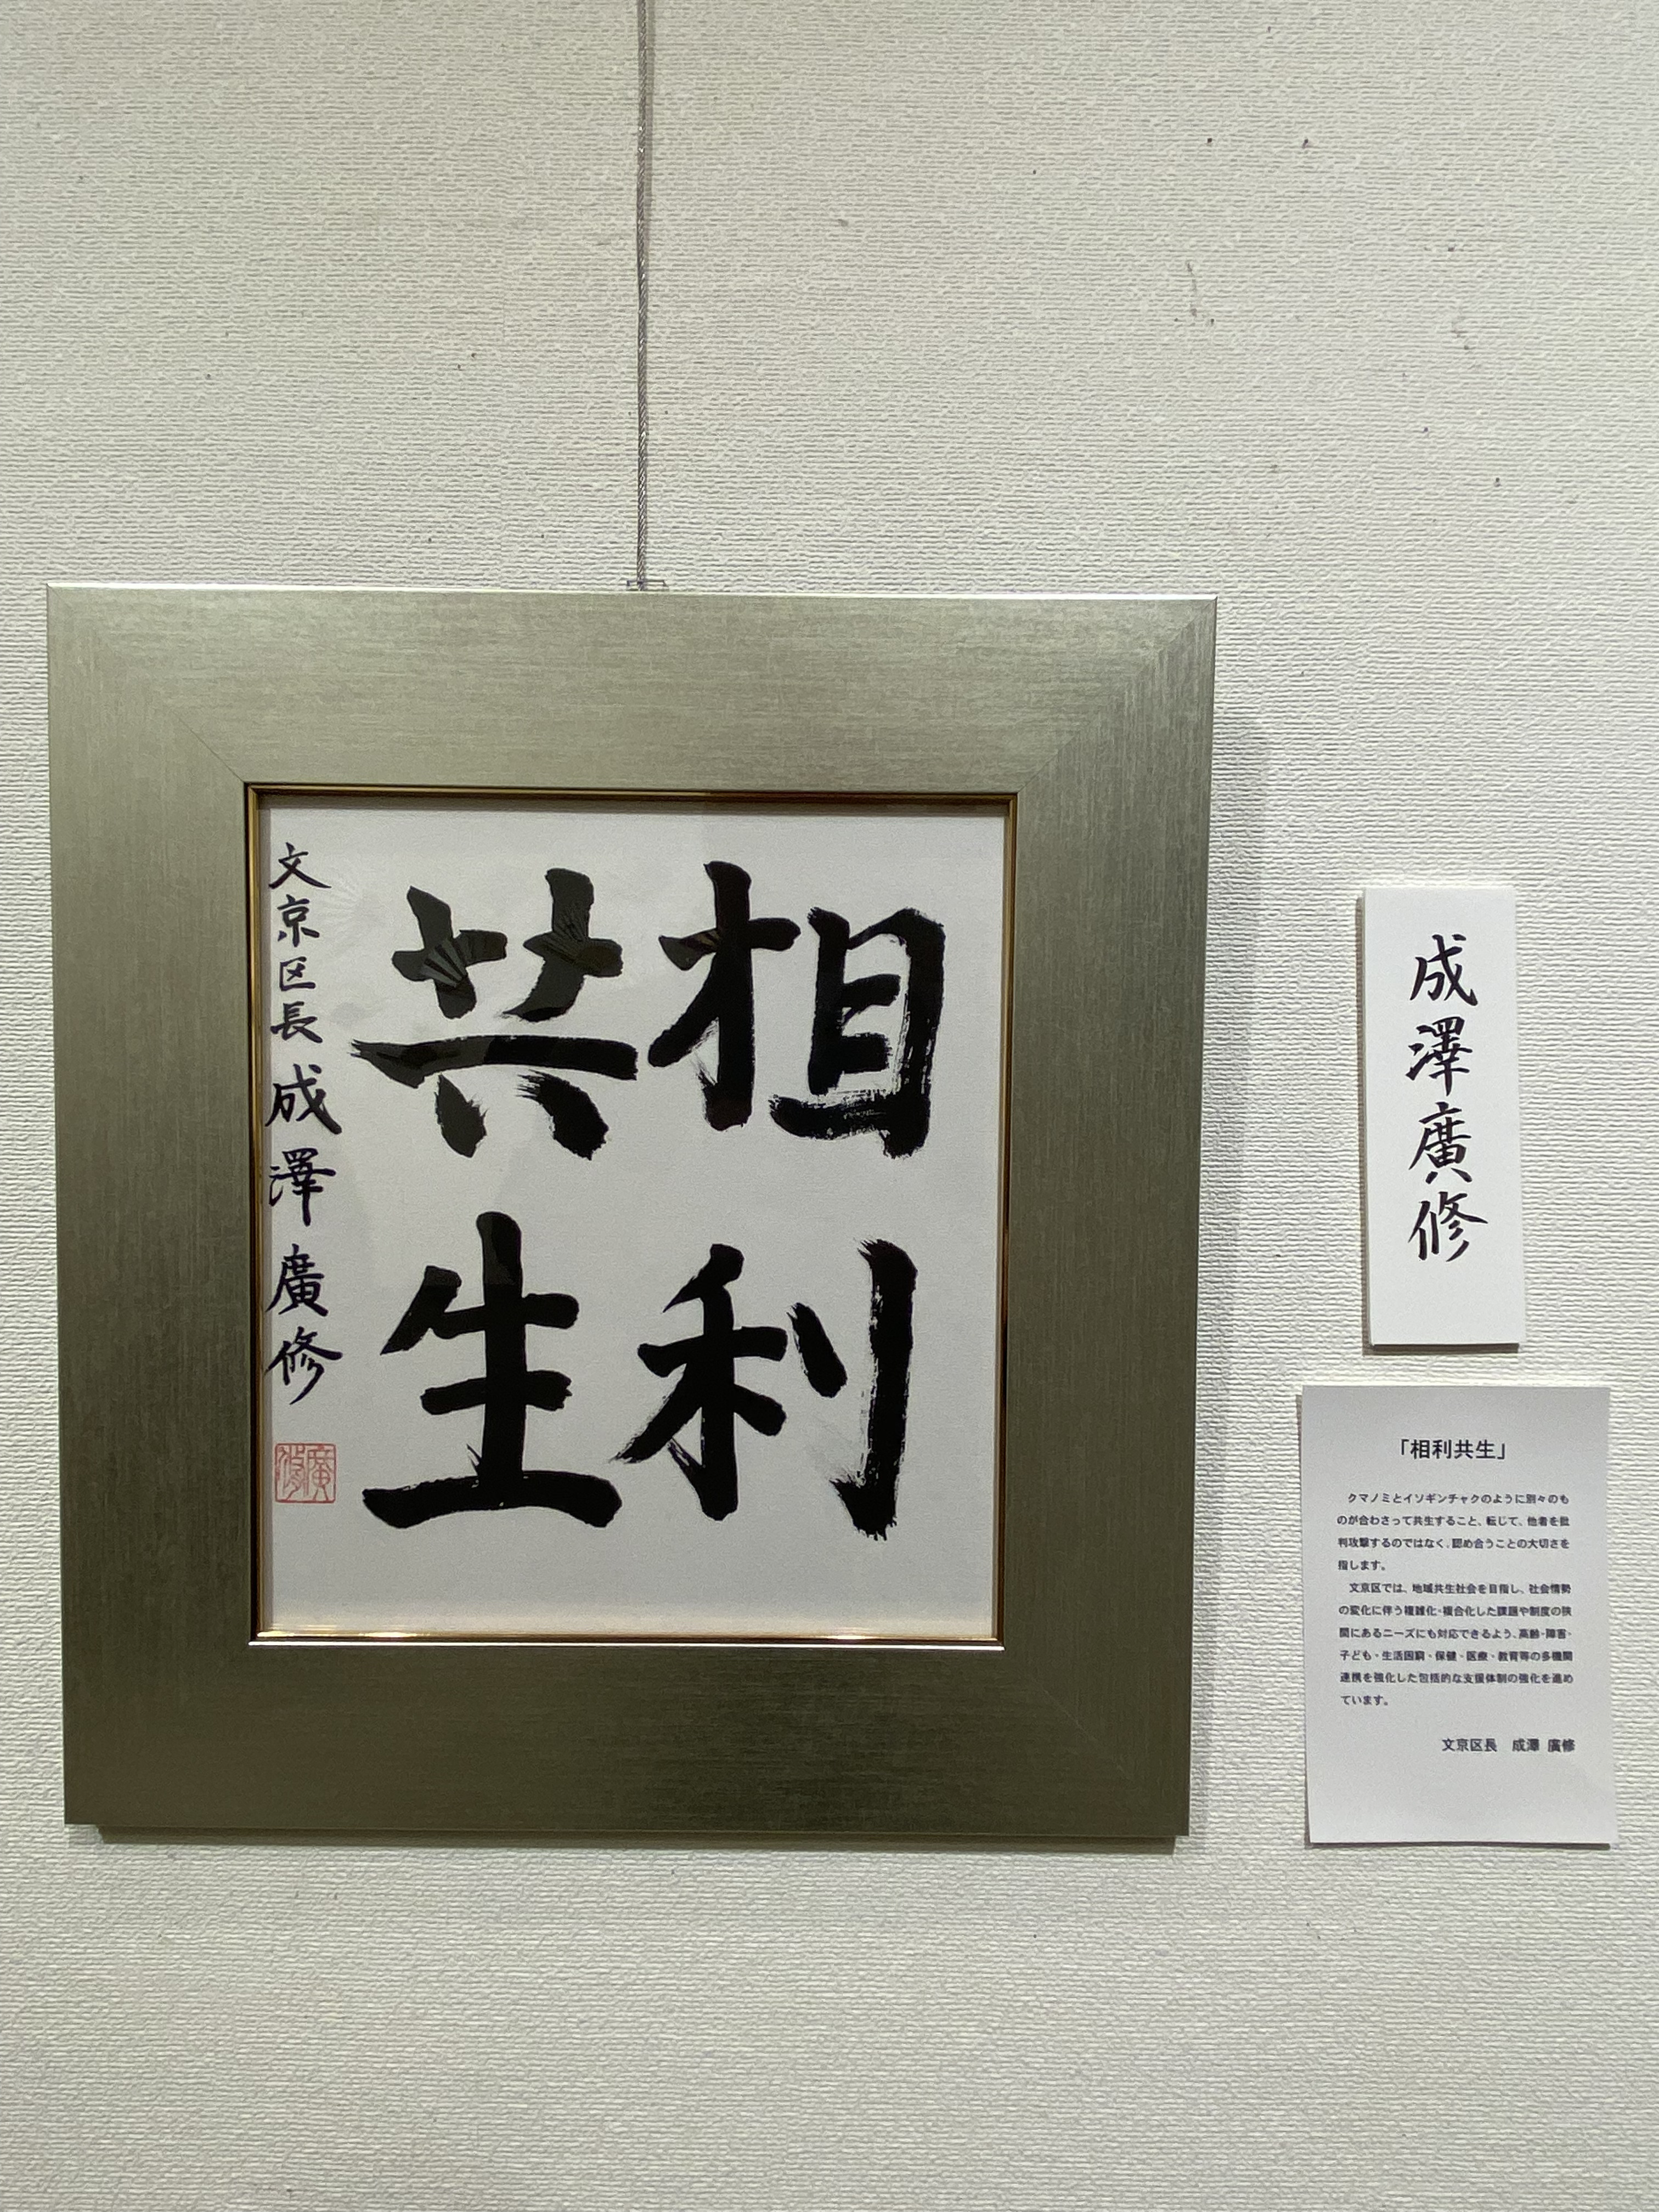 相利
共生
文京区長 成澤廣修
廣修
成澤廣修
「相利共生」
クマノミとイソギンチャクのように別々のも
のが合わさって共生すること、転じて、他者を批
判攻撃するのではなく、認め合うことの大切さを
指します。
文京区では、地域共生社会を目指し、社会情勢
の変化に伴う複雑化・複合化した課題や制度の狭
間にあるニーズにも対応できるよう、高齢・障害・
子ども・生活困窮・保健・医療・教育等の多機関
連携を強化した包括的な支援体制の強化を進め
ています。
文京区長　成澤 廣修